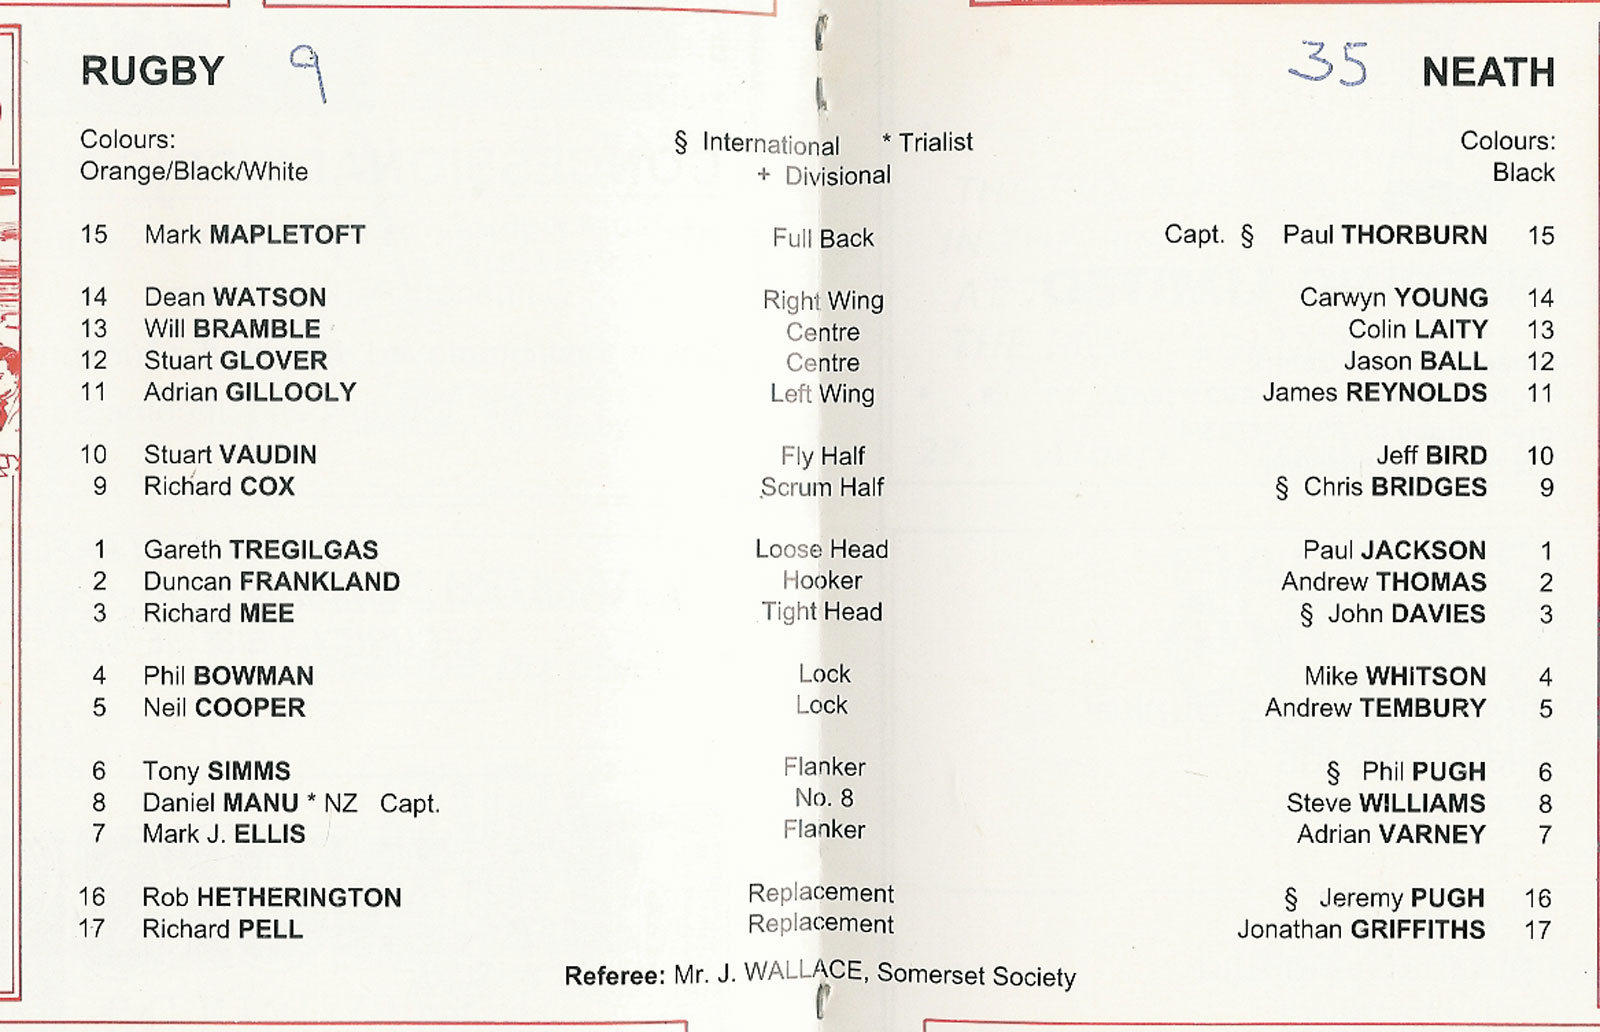 RUGBY 9 35 NEATH
Colours: § International * Trialist Colours:
Orange/Black/White + Divisional Black
15 Mark MAPLETOFT Full Back Capt. § Paul THORBURN 15
14 Dean WATSON Right Wing Carwyn YOUNG 14
13 Will BRAMBLE Centre Colin LAITY 13
12 Stuart GLOVER Centre Jason BALL 12
11 Adrian GILLOOLY Left Wing James REYNOLDS 11
10 Stuart VAUDIN Fly Half Jeff BIRD 10
9 Richard COX Scrum Half § Chris BRIDGES 9
1 Gareth TREGILGAS Loose Head Paul JACKSON 1
2 Duncan FRANKLAND Hooker Andrew THOMAS 2
3 Richard MEE Tight Head § John DAVIES 3
4 Phil BOWMAN Lock Mike WHITSON 4
5 Neil COOPER Lock Andrew TEMBURY 5
6 Tony SIMMS Flanker § Phil PUGH 6
8 Daniel MANU * NZ Capt. No. 8 Steve WILLIAMS 8
7 Mark J. ELLIS Flanker Adrian VARNEY 7
16 Rob HETHERINGTON Replacement § Jeremy PUGH 16
17 Richard PELL Replacement Jonathan GRIFFITHS 17
Referee: Mr. J. WALLACE, Somerset Society